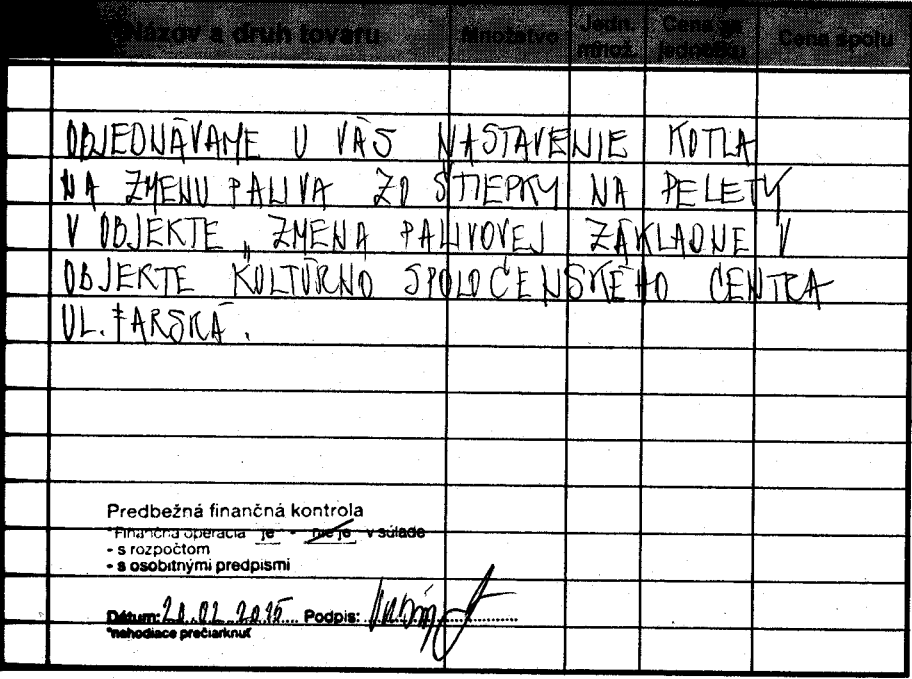 Názov a druh tovaru Množstvo Jedn. množ. Cena za jednotku Cena spolu
OBJEDNÁVAME U VÁS NASTAVENIE KOTLA
NA ZMENU PALIVA ZO ŠTIEPKY NA PELETY
V OBJEKTE „ ZMENA PALIVOVEJ ZÁKLADNE V
OBJEKTE KULTÚRNO SPOLOČENSKÉHO CENTRA
UL. FARSKÁ.
Predbežná finančná kontrola
*Finančná operácia je - nie je v súlade
- s rozpočtom
- s osobitnými predpismi
Dátum: 20.02.2015 Podpis:
*nehodiace prečiarknuť